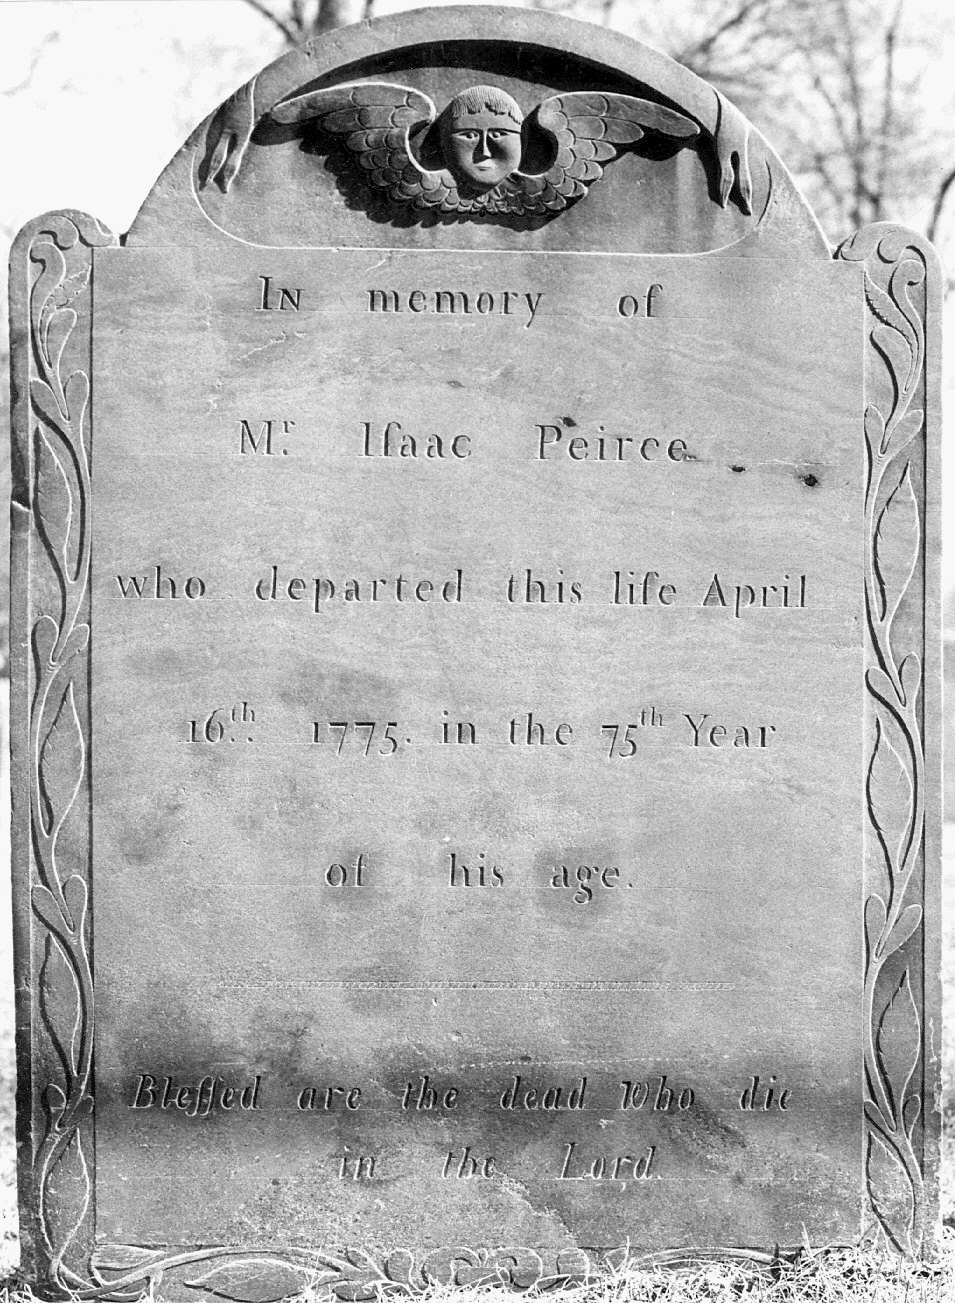 In memory of
Mr. Iſaac Peirce
who departed this life April
16th. 1775. in the 75th Year
of his age.
Bleſſed are the dead who die
in the Lord.